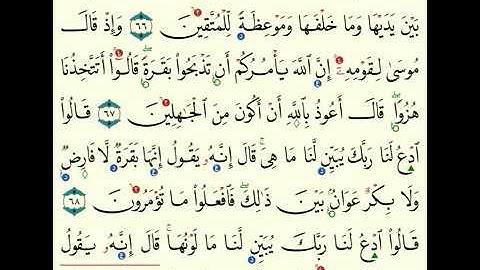 بَيْنَ يَدَيْهَا وَمَا خَلْفَهَا وَمَوْعِظَةً لِّلْمُتَّقِينَ ٦٦ وَإِذْ قَالَ
مُوسَىٰ لِقَوْمِهِۦٓ إِنَّ ٱللَّهَ يَأْمُرُكُمْ أَن تَذْبَحُوا۟ بَقَرَةً ۖ قَالُوٓا۟ أَتَتَّخِذُنَا
هُزُوًا ۖ قَالَ أَعُوذُ بِٱللَّهِ أَنْ أَكُونَ مِنَ ٱلْجَٰهِلِينَ ٦٧ قَالُوا۟
ٱدْعُ لَنَا رَبَّكَ يُبَيِّن لَّنَا مَا هِىَ ۚ قَالَ إِنَّهُۥ يَقُولُ إِنَّهَا بَقَرَةٌ لَّا فَارِضٌ
وَلَا بِكْرٌ عَوَانٌۢ بَيْنَ ذَٰلِكَ ۖ فَٱفْعَلُوا۟ مَا تُؤْمَرُونَ ٦٨
قَالُوا۟ ٱدْعُ لَنَا رَبَّكَ يُبَيِّن لَّنَا مَا لَوْنُهَا ۚ قَالَ إِنَّهُۥ يَقُولُ